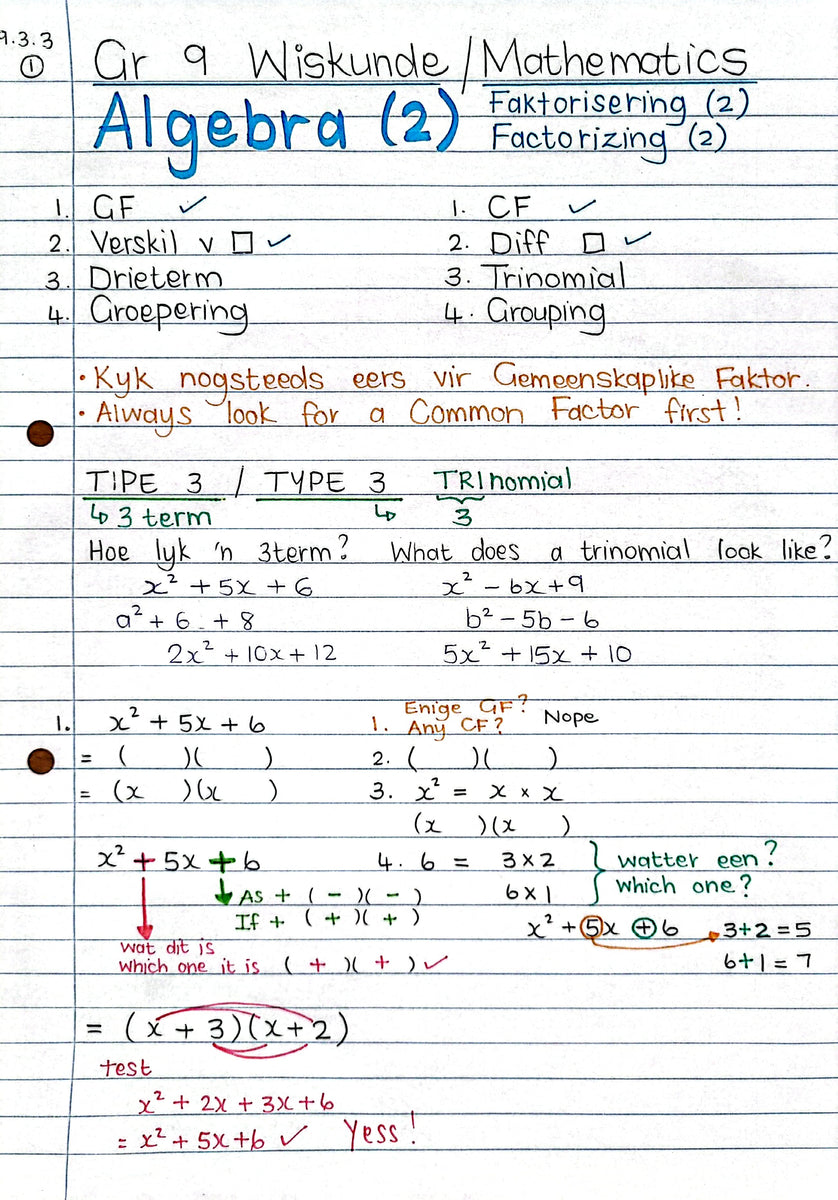 9.3.3
①
Gr 9 Wiskunde / Mathematics
Algebra (2) Faktorisering (2)
Factorizing (2)
1. GF ✓ 1. CF ✓
2. Verskil v □ ✓ 2. Diff □ ✓
3. Drieterm 3. Trinomial
4. Groepering 4. Grouping
• Kyk nogsteeds eers vir Gemeenskaplike Faktor.
• Always look for a Common Factor first!
TIPE 3 / TYPE 3 TRInomial
↳ 3 term ↳ 3
Hoe lyk 'n 3term? What does a trinomial look like?
x² + 5x + 6 x² - 6x + 9
a² + 6 + 8 b² - 5b - 6
2x² + 10x + 12 5x² + 15x + 10
Enige GF?
1. x² + 5x + 6 1. Any CF? Nope
= ( )( ) 2. ( )( )
= (x )(x ) 3. x² = x × x
(x )(x )
x² + 5x + 6 4. 6 = 3 × 2 } watter een?
↓ As + ( - )( - ) 6 × 1 } which one?
If + ( + )( + ) x² + 5x + 6 3+2=5
wat dit is 6+1=7
which one it is ( + )( + ) ✓
= (x + 3)(x + 2)
test
x² + 2x + 3x + 6
= x² + 5x + 6 ✓ Yess!